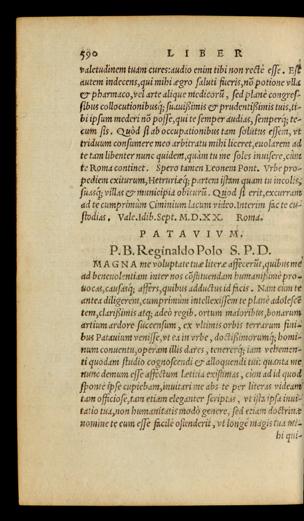 590 LIBER
valetudinem tuam cures: audio enim tibi non rectè esse. Est
autem indecens, qui mihi ægro saluti fueris, nō potione vlla
& pharmaco, vel arte alique medicorū, sed planè congres-
sibus collocutionibusq́; suauißimis & prudentißimis tuis, ti-
bi ipsum mederi nō posse, qui te semper audias, semperq́; te-
cum sis. Quòd si ab occupationibus tam solutus essem, vt
triduum consumere meo arbitratu mihi liceret, euolarem ad
te tam libenter nunc quidem, quàm tu me soles inuisere, cùm
te Roma continet. Spero tamen Leonem Pont. Vrbe pro-
pediem exiturum, Hetruriæq́; partem istam quam tu incolis,
suasq́; villas & municipia obiturū. Quòd si erit, excurram
ad te cumprimùm Ciminium lacum video. Interim fac te cu-
stodias. Vale. Idib. Sept. M. D. XX. Roma.
PATAVIVM.
P. B. Reginaldo Polo S. P. D.
MAGNA me voluptate tuæ literæ affecerūt, quibus me
ad beneuolentiam inter nos cōstituendam humanißimè pro-
uocas, causasq́; affers, quibus adductus id facis. Nam cùm te
antea diligerem, cumprimùm intellexissem te planè adolescē
tem, clarißimis atq; adeò regib. ortum maioribus, bonarum
artium ardore succensum, ex vltimis orbis terrarum fini-
bus Patauium venisse, vt ea in vrbe, doctißimorumq́; homi-
num conuentu, operam illis dares, tenererq́; iam vehemen-
ti quodam studio cognoscendi & alloquendi tui: quanta me
nunc demum esse affectum lætitia existimas, cùm ad id quod
sponte ipse cupiebam, inuitari me abs te per literas videam
tam officiosè, tam etiam eleganter scriptas, vt ista ipsa inui-
tatio tua, non humanitatis modò genere, sed etiam doctrinæ
nomine te cum esse facilè ostenderit, vt longè magis tua mi-
hi qui-